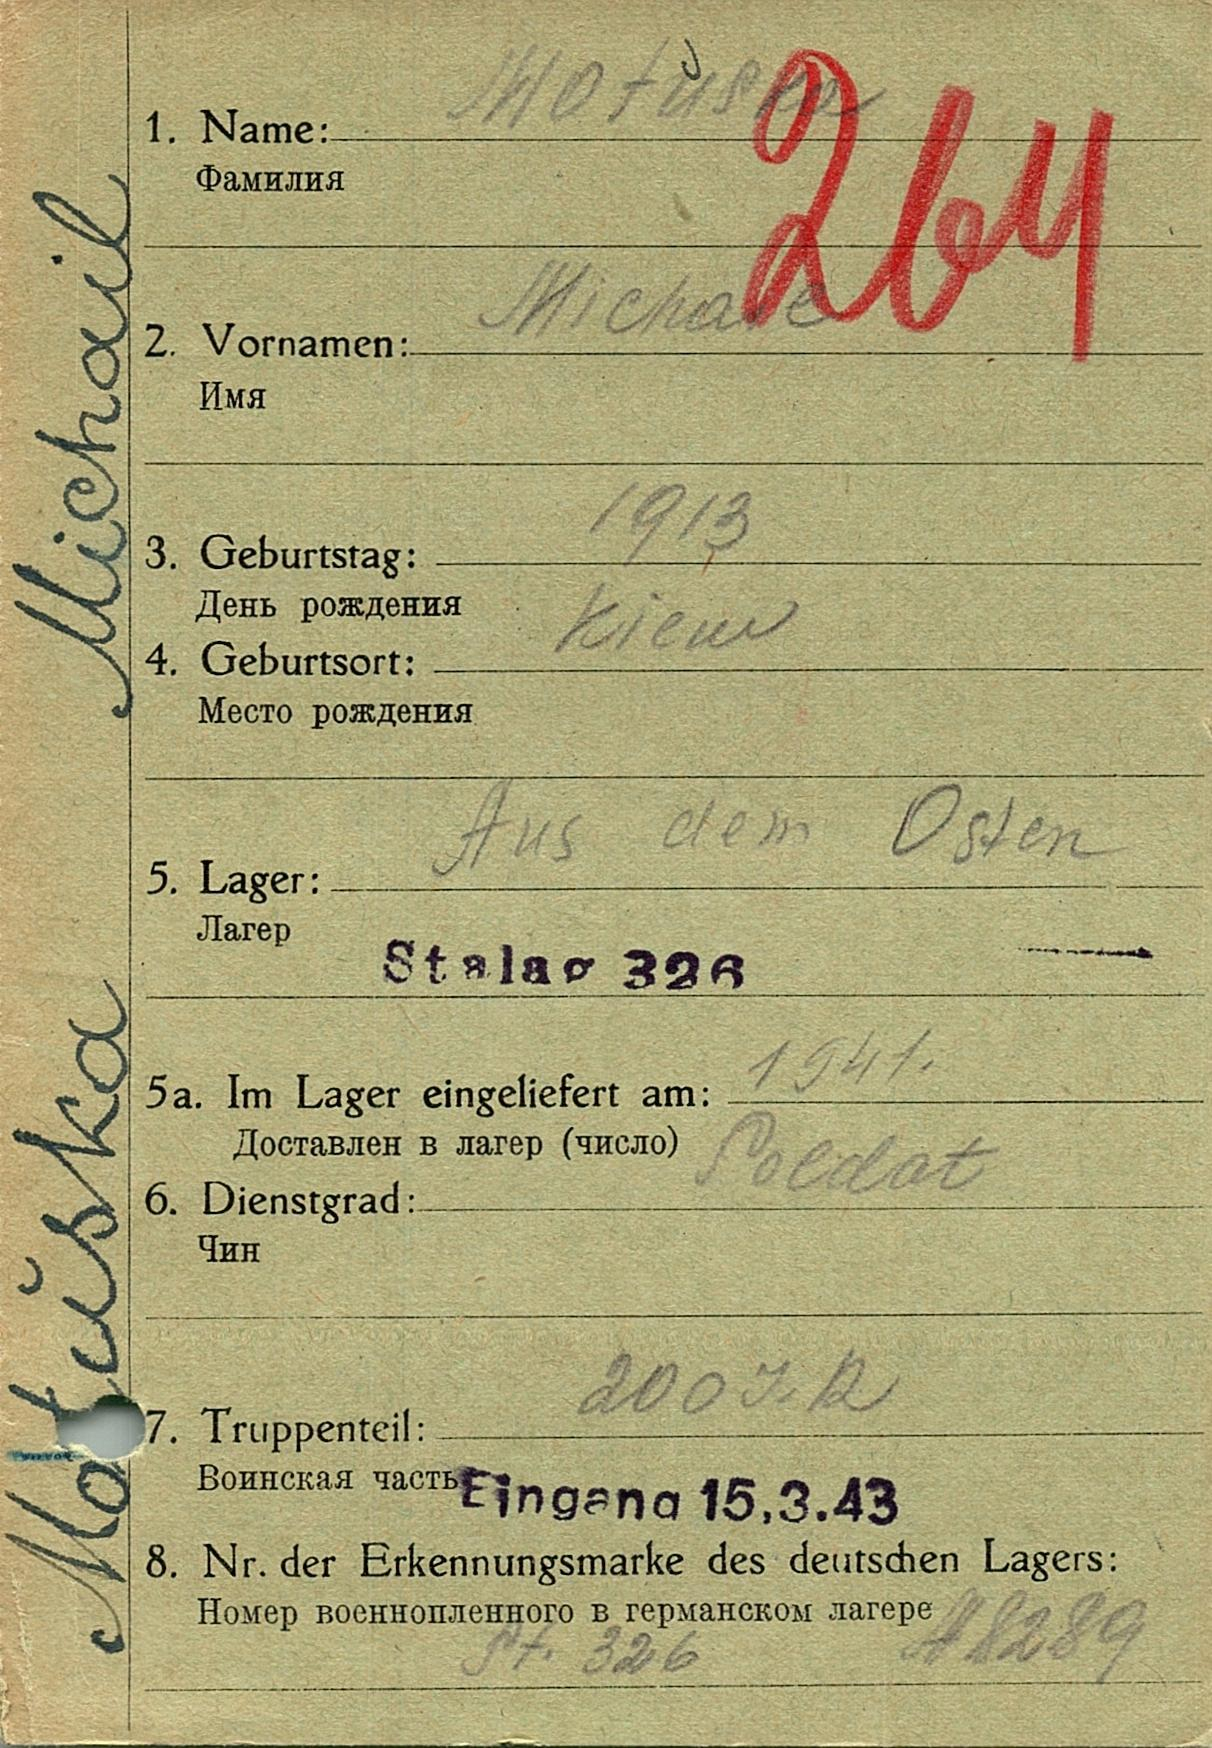 Motŭska
264
1. Name:
Фамилия
Michail
2. Vornamen:
Имя
1913
3. Geburtstag:
День рождения
Kiew
4. Geburtsort:
Место рождения
Aus dem Osten
5. Lager:
Лагер
Stalag 326
1941.
5a. Im Lager eingeliefert am:
Доставлен в лагер (число)
Soldat
6. Dienstgrad:
Чин
200 I. R
7. Truppenteil:
Воинская часть
Eingang 15.3.43
8. Nr. der Erkennungsmarke des deutschen Lagers:
Номер военнопленного в германском лагере
St. 326
Motŭska Michail